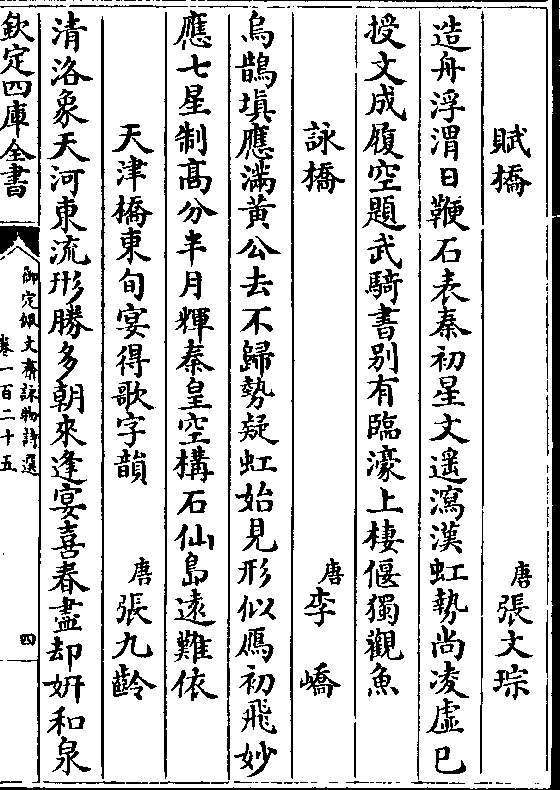 賦橋 唐張文琮
造舟浮渭日鞭石表秦初星文遥瀉漢虹勢尚凌虛已
授文成履空題武騎書别有臨濠上棲偃獨觀魚
詠橋 唐李嶠
烏鵲填應滿黄公去不歸勢疑虹始見形似鴈初飛妙
應七星制髙分半月輝秦皇空構石仙島逺難依
天津橋東旬宴得歌字韻 唐張九齡
清洛象天河東流形勝多朝來逢宴喜春盡却妍和泉
欽定四庫全書
御定佩文齋詠物詩選
卷一百二十五
四